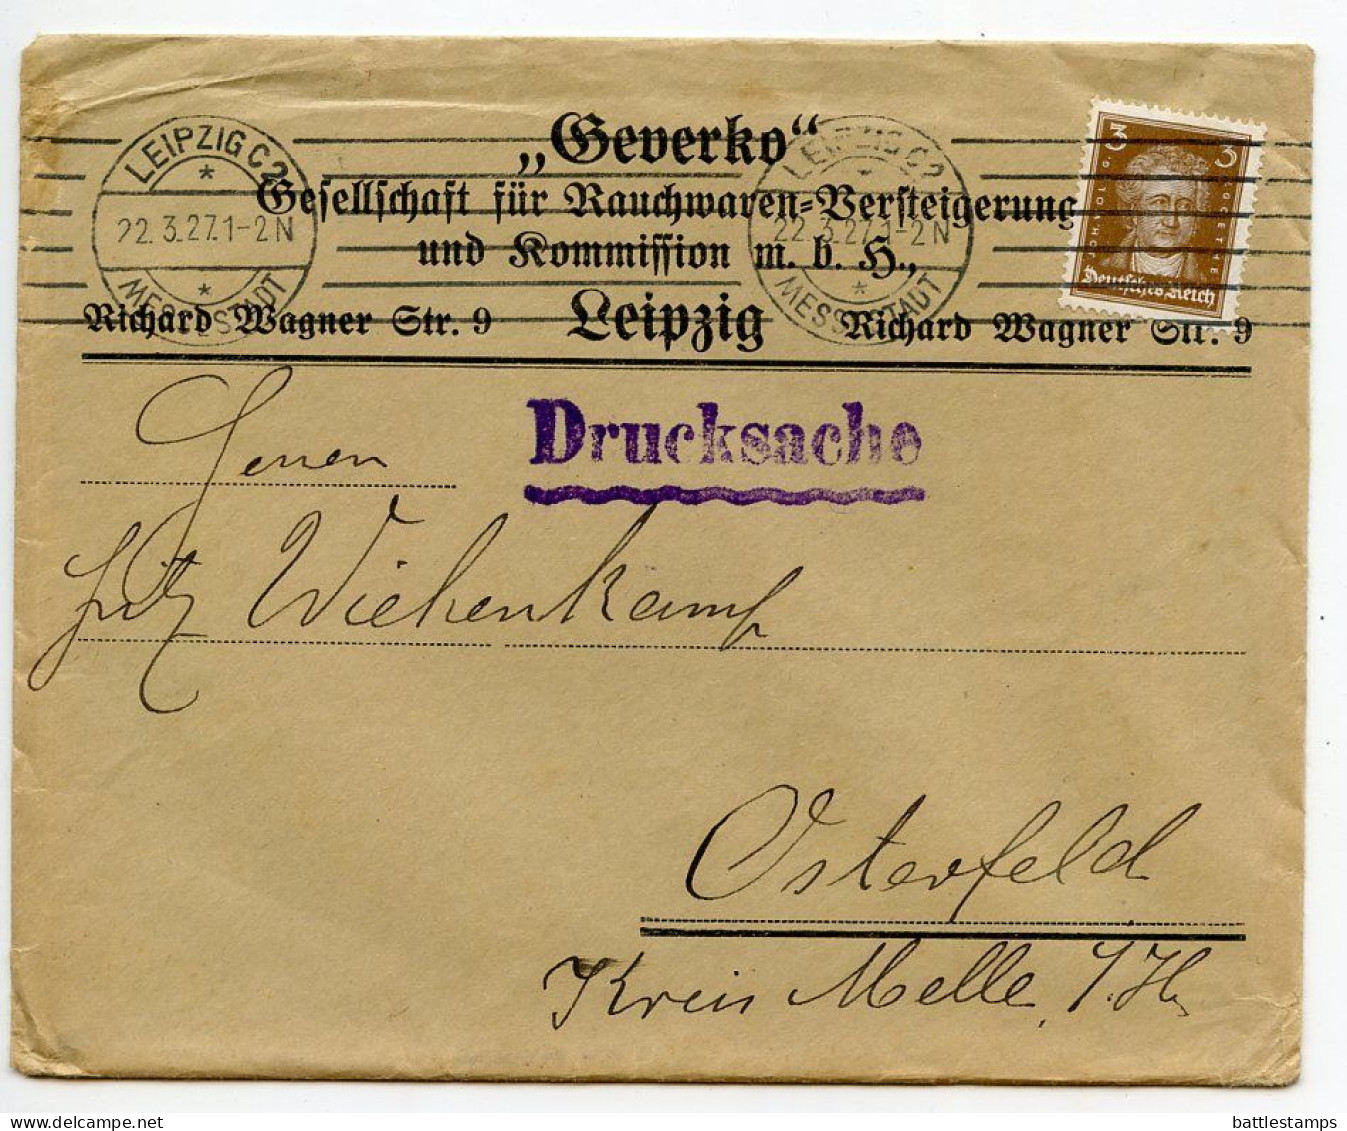 „Geverko“
Gesellschaft für Rauchwaren-Versteigerung
und Kommission m. b. H.,
Richard Wagner Str. 9 Leipzig Richard Wagner Str. 9
LEIPZIG C2
22.3.27.1-2N
MESSESTADT
LEIPZIG C2
22.3.27.1-2N
MESSESTADT
3 3
Deutsches Reich
Drucksache
Herren
Fritz Wiehenkamp
Osterfeld
Kreis Melle,
battlestamps